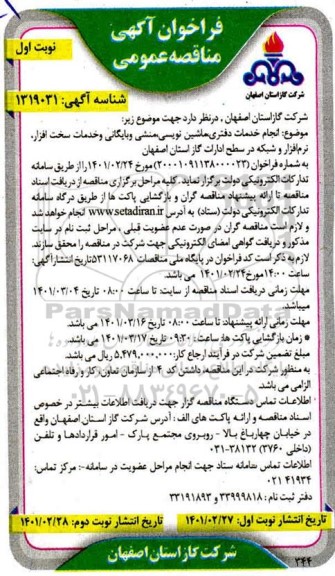 فراخوان آگهی
مناقصه عمومی
نوبت اول
شرکت گاز استان اصفهان
شناسه آگهی: ۱۳۱۹۰۳۱
شرکت گاز استان اصفهان ، درنظر دارد جهت موضوع زیر:
موضوع: انجام خدمات دفتری،ماشین نویسی،منشی وبایگانی وخدمات سخت افزار،
نرم‌افزار و شبکه در سطح ادارات گاز استان اصفهان
به شماره فراخوان (۲۰۰۰۰۹۱۱۳۸۰۰۰۰۲۳) مورخ ۱۴۰۱/۰۲/۲۴ را از طریق سامانه
تدارکات الکترونیکی دولت برگزار نماید. کلیه مراحل برگزاری مناقصه از دریافت اسناد
مناقصه تا ارائه پیشنهاد مناقصه گران و بازگشایی پاکت ها از طریق درگاه سامانه
تدارکات الکترونیکی دولت (ستاد) به آدرس www.setadiran.ir انجام خواهد شد
و لازم است مناقصه گران در صورت عدم عضویت قبلی، مراحل ثبت نام در سایت
مذکور و دریافت گواهی امضای الکترونیکی جهت شرکت در مناقصه را محقق سازند.
لازم به ذکر است کد فراخوان در پایگاه ملی مناقصات ۵۳۱۱۷۰۶۸ تاریخ انتشار آگهی:
ساعت ۱۴:۰۰ مورخ ۱۴۰۱/۰۲/۲۴ می باشد.
مهلت زمانی دریافت اسناد مناقصه از سایت: تا ساعت ۰۸:۰۰ تاریخ ۱۴۰۱/۰۳/۰۴
میباشد.
مهلت زمانی ارائه پیشنهاد تا ساعت ۰۸:۰۰ تاریخ ۱۴۰۱/۰۳/۱۶ می باشد.
زمان بازگشایی پاکت ها: ساعت ۰۹:۳۰ تاریخ ۱۴۰۱/۰۳/۱۷ می باشد.
مبلغ تضمین شرکت در فرآیند ارجاع کار: ۵,۴۷۹,۰۰۰,۰۰۰ ریال می باشد.
به منظور شرکت در این مناقصه، داشتن کد ۴ از سازمان تعاون، کار و رفاه اجتماعی
الزامی می باشد.
اطلاعات تماس دستگاه مناقصه گزار جهت دریافت اطلاعات بیشتر در خصوص
اسناد مناقصه و ارائه پاکت های الف : آدرس شرکت گاز استان اصفهان واقع
در خیابان چهارباغ بالا - روبروی مجتمع پارک - امور قراردادها و تلفن
(داخلی ۳۷۶۰) ۰۳۱-۳۸۱۳۲
اطلاعات تماس سامانه ستاد جهت انجام مراحل عضویت در سامانه:- مرکز تماس:
۰۲۱ ۴۱۹۳۴
دفتر ثبت نام : ۳۳۹۹۹۸۱۸ و ۳۳۱۹۱۸۹۳
تاریخ انتشار نوبت اول: ۱۴۰۱/۰۲/۲۷
تاریخ انتشار نوبت دوم: ۱۴۰۱/۰۲/۲۸
شرکت گاز استان اصفهان
۳۴۴
ParsNamadData